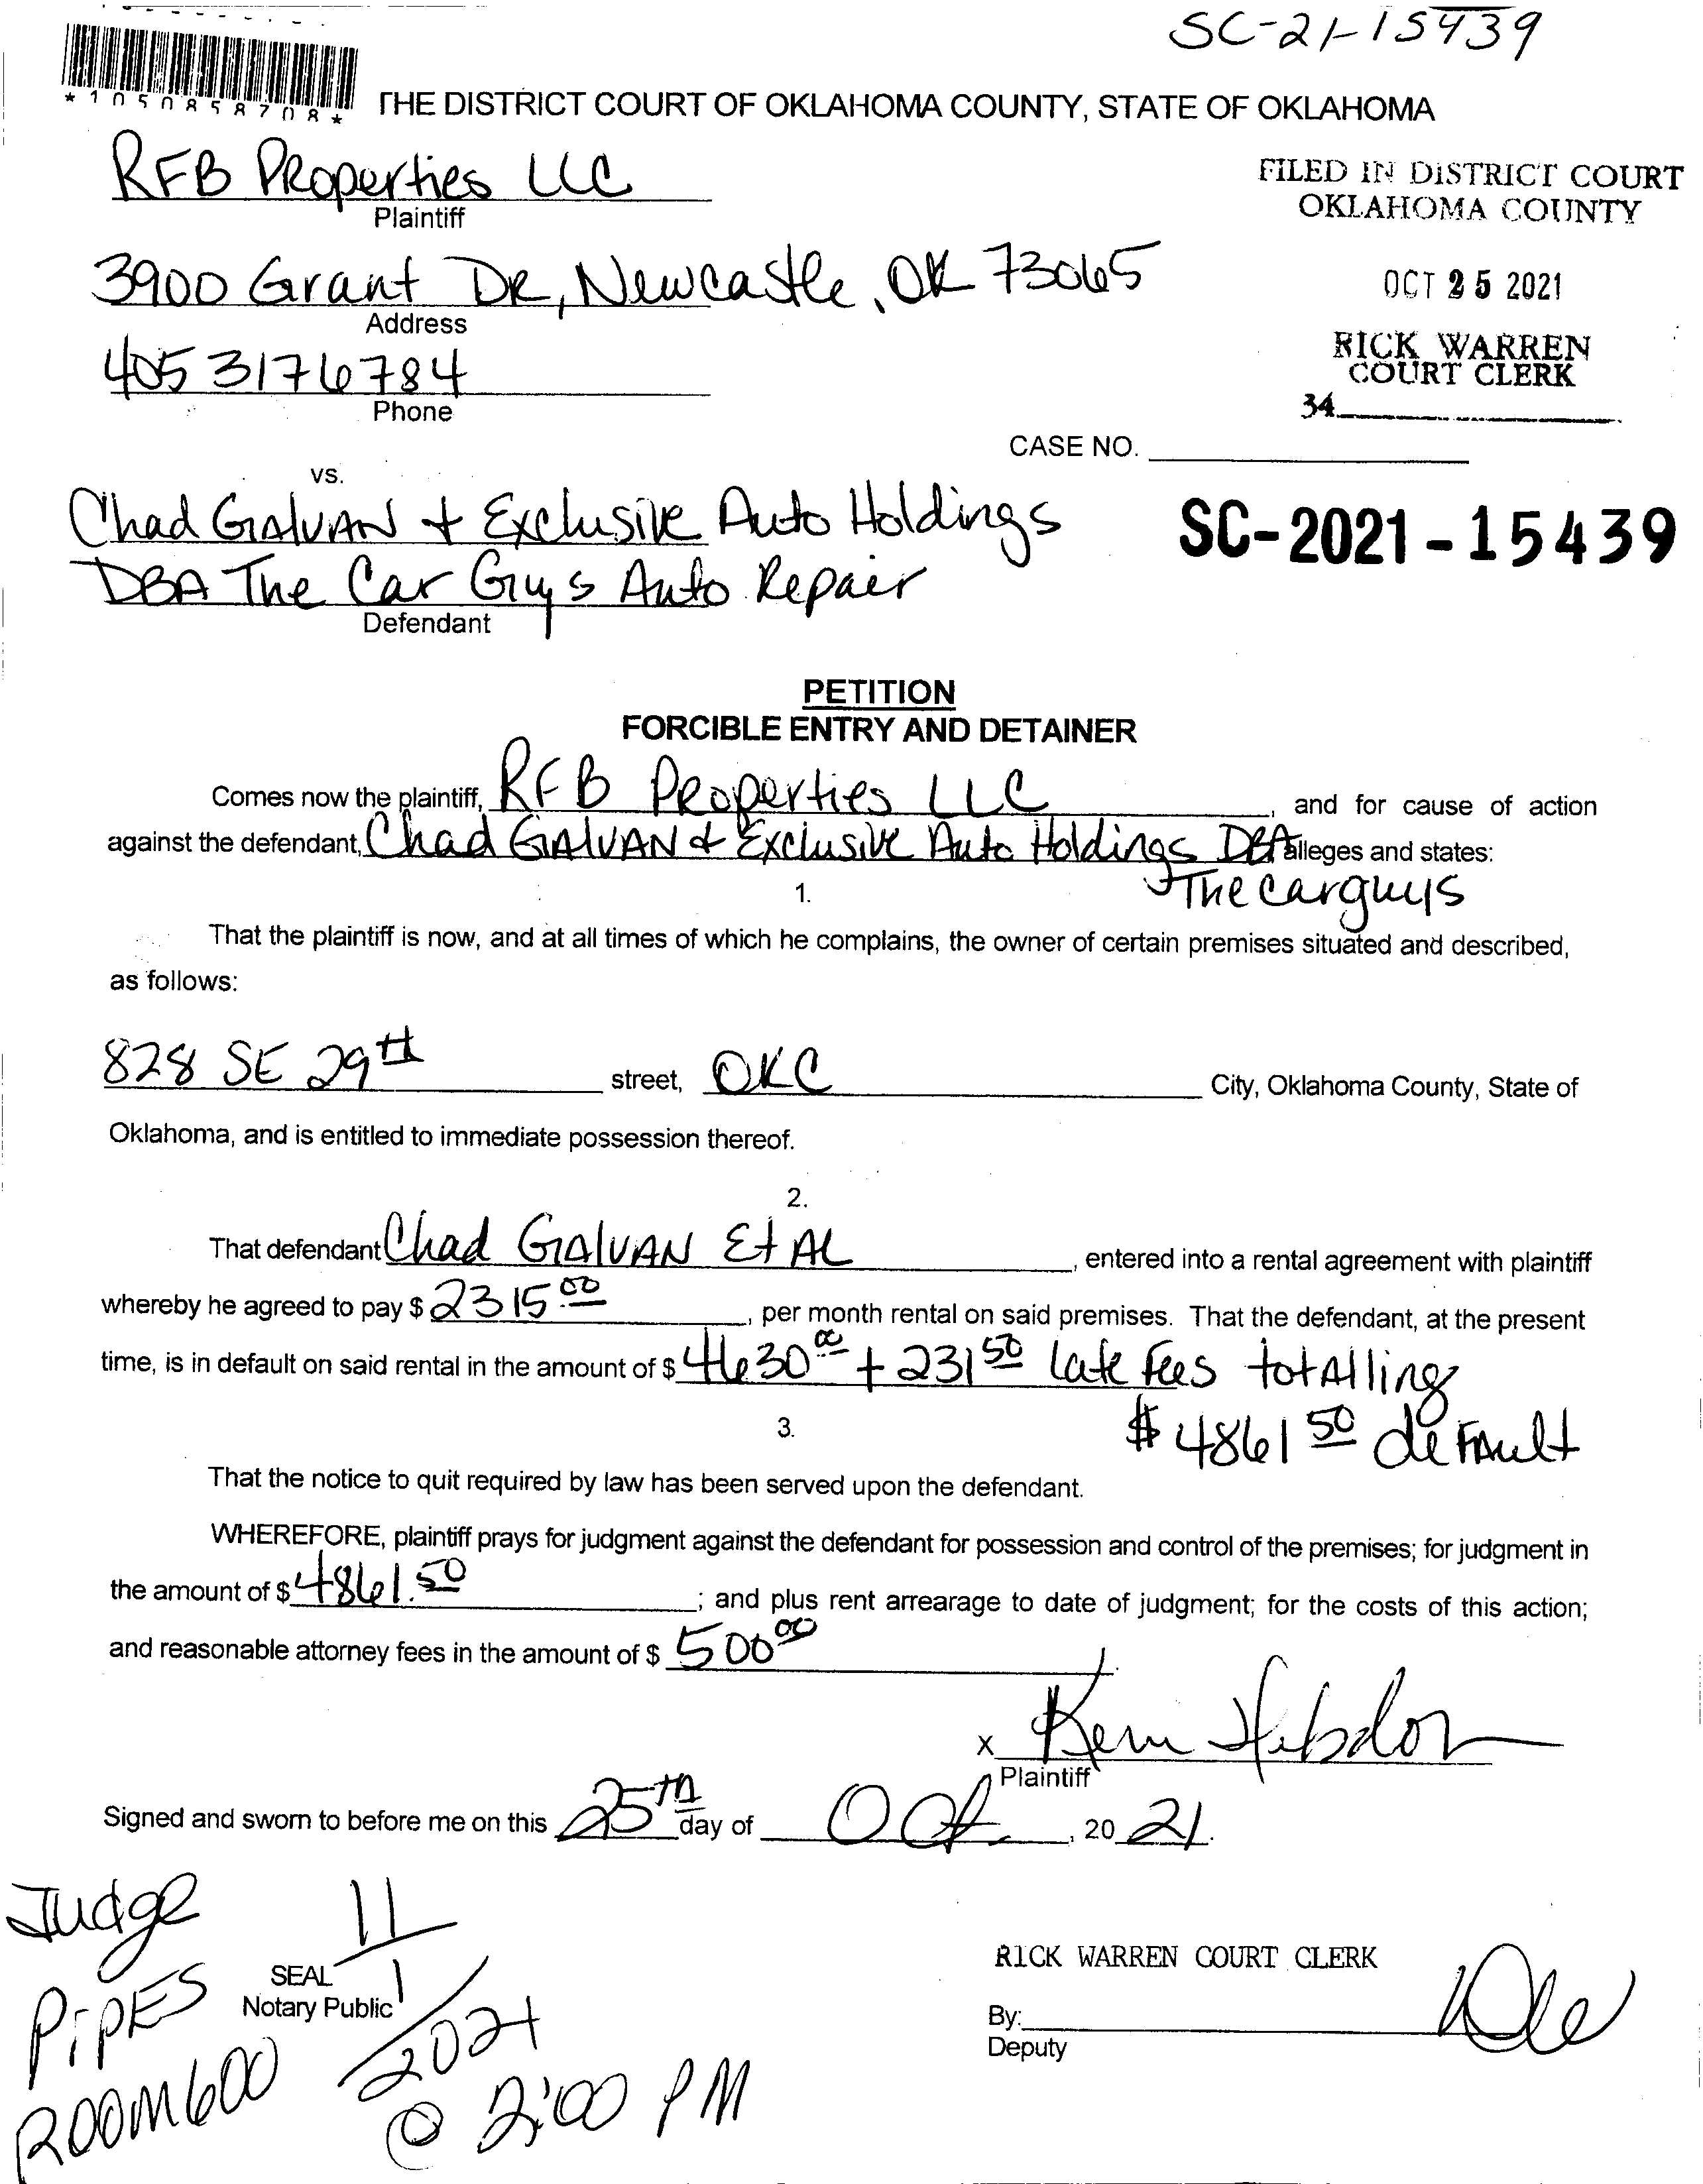 SC-21-15439
*1050858708*
THE DISTRICT COURT OF OKLAHOMA COUNTY, STATE OF OKLAHOMA
RFB Properties LLC
Plaintiff
FILED IN DISTRICT COURT
OKLAHOMA COUNTY
3900 Grant DR, Newcastle, OK 73065
Address
OCT 25 2021
405 3176784
Phone
RICK WARREN
COURT CLERK
34
CASE NO.
vs.
Chad GALVAN + Exclusive Auto Holdings
DBA The Car Guys Auto Repair
Defendant
SC-2021-15439
PETITION
FORCIBLE ENTRY AND DETAINER
Comes now the plaintiff, RFB Properties LLC, and for cause of action
against the defendant, Chad GALVAN & Exclusive Auto Holdings DBA alleges and states:
The carguys
1.
That the plaintiff is now, and at all times of which he complains, the owner of certain premises situated and described,
as follows:
828 SE 29th street, OKC City, Oklahoma County, State of
Oklahoma, and is entitled to immediate possession thereof.
2.
That defendant Chad GALVAN Et AL, entered into a rental agreement with plaintiff
whereby he agreed to pay $ 2315 00, per month rental on said premises. That the defendant, at the present
time, is in default on said rental in the amount of $ 4630 00 + 231 50 late fees totalling
$ 4861 50 default
3.
That the notice to quit required by law has been served upon the defendant.
WHEREFORE, plaintiff prays for judgment against the defendant for possession and control of the premises; for judgment in
the amount of $ 4861.50; and plus rent arrearage to date of judgment; for the costs of this action;
and reasonable attorney fees in the amount of $ 500 00.
X
Plaintiff
Signed and sworn to before me on this 25th day of Oct., 20 21.
Judge
PIPES
ROOM 600
11/1/2021
@ 2:00 PM
SEAL
Notary Public
RICK WARREN COURT CLERK
By:
Deputy